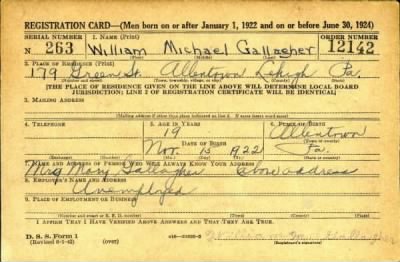 REGISTRATION CARD—(Men born on or after January 1, 1922 and on or before June 30, 1924)
SERIAL NUMBER 1. NAME (Print) ORDER NUMBER
N 263 William Michael Gallagher 12142
(First) (Middle) (Last)
2. PLACE OF RESIDENCE (Print)
179 Green St. Allentown Lehigh Pa.
(Number and street) (Town, township, village, or city) (County) (State)
[THE PLACE OF RESIDENCE GIVEN ON THE LINE ABOVE WILL DETERMINE LOCAL BOARD
JURISDICTION; LINE 2 OF REGISTRATION CERTIFICATE WILL BE IDENTICAL]
3. MAILING ADDRESS
[Mailing address if other than place indicated on line 2. If same insert word same]
4. TELEPHONE 5. AGE IN YEARS 6. PLACE OF BIRTH
19 Allentown
DATE OF BIRTH
Nov. 15 1922 Pa.
(Exchange) (Number) (Mo.) (Day) (Yr.) (State or country)
7. NAME AND ADDRESS OF PERSON WHO WILL ALWAYS KNOW YOUR ADDRESS
Mrs Mary Gallagher above address
8. EMPLOYER'S NAME AND ADDRESS
Unemployed
9. PLACE OF EMPLOYMENT OR BUSINESS
(Number and street or R. F. D. number) (Town) (County) (State)
I AFFIRM THAT I HAVE VERIFIED ABOVE ANSWERS AND THAT THEY ARE TRUE.
D. S. S. Form 1
(Revised 6-1-42) (over) William Gallagher
(Registrant's signature)